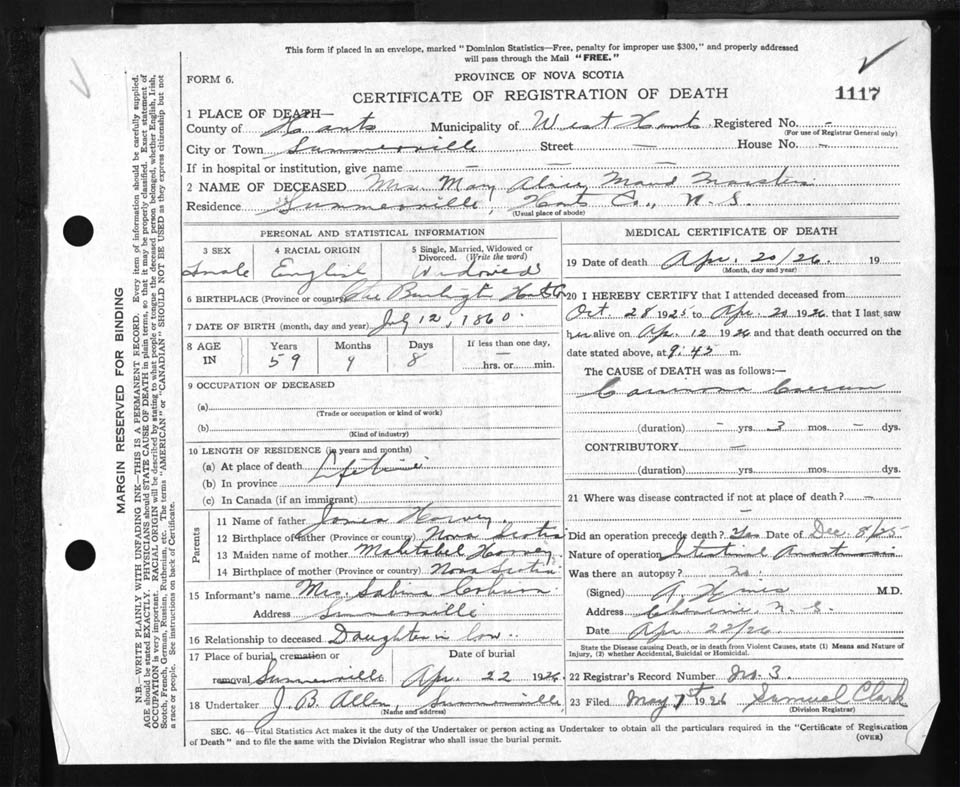 This form if placed in an envelope, marked "Dominion Statistics—Free, penalty for improper use $300," and properly addressed
will pass through the Mail "FREE."
FORM 6.
PROVINCE OF NOVA SCOTIA
CERTIFICATE OF REGISTRATION OF DEATH
1117
1 PLACE OF DEATH—
County of Hants Municipality of West Hants Registered No. -
(For use of Registrar General only)
City or Town Summerville Street — House No. -
If in hospital or institution, give name — — —
2 NAME OF DECEASED Mrs. Mary Maud
Residence Summerville, Hants Co., N. S.
(Usual place of abode)
PERSONAL AND STATISTICAL INFORMATION
3 SEX 4 RACIAL ORIGIN 5 Single, Married, Widowed or
Divorced. (Write the word)
English Widowed
6 BIRTHPLACE (Province or country) Burlington Hants Co
7 DATE OF BIRTH (month, day and year) July 12, 1860.
8 AGE IN Years Months Days If less than one day,
59 9 8 —
hrs. or min.
9 OCCUPATION OF DECEASED
(a)
(Trade or occupation or kind of work)
(b)
(Kind of industry)
10 LENGTH OF RESIDENCE (in years and months)
(a) At place of death Lifetime
(b) In province
(c) In Canada (if an immigrant)
Parents
11 Name of father James Harvey.
12 Birthplace of father (Province or country) Nova Scotia
13 Maiden name of mother Harvey
14 Birthplace of mother (Province or country) Nova Scotia
15 Informant's name Mrs. Sabina
Address Summerville
16 Relationship to deceased Daughter in law.
17 Place of burial, cremation or Date of burial
removal Summerville Apr. 22 1926
18 Undertaker J. B. Allen, Summerville
(Name and address)
MEDICAL CERTIFICATE OF DEATH
19 Date of death Apr. 20/26. 19
(Month, day and year)
20 I HEREBY CERTIFY that I attended deceased from
Oct. 28 1925 to Apr. 20 1926, that I last saw
her alive on Apr. 12 1926 and that death occurred on the
date stated above, at 9.45 m.
The CAUSE OF DEATH was as follows:—
(duration) - yrs. 3 mos. - dys.
CONTRIBUTORY —
(duration) yrs. mos. dys.
21 Where was disease contracted if not at place of death? —
Did an operation precede death? Yes Date of Dec. 8/25
Nature of operation Intestinal
Was there an autopsy? No.
(Signed) A. M.D.
Address N. S.
Date Apr. 22/26.
State the Disease causing Death, or in death from Violent Causes, state (1) Means and Nature of
Injury, (2) whether Accidental, Suicidal or Homicidal.
22 Registrar's Record Number No. 3.
23 Filed May 1st 1926 Samuel Clark
(Division Registrar)
SEC. 46—Vital Statistics Act makes it the duty of the Undertaker or person acting as Undertaker to obtain all the particulars required in the "Certificate of Registration
of Death" and to file the same with the Division Registrar who shall issue the burial permit.
(OVER)
MARGIN RESERVED FOR BINDING
N.B.—WRITE PLAINLY WITH UNFADING INK—THIS IS A PERMANENT RECORD. Every item of information should be carefully supplied.
AGE should be stated EXACTLY. PHYSICIANS should STATE CAUSE OF DEATH in plain terms, so that it may be properly classified. Exact statement of
OCCUPATION is very important. RACIAL ORIGIN will be described by stating to what people or tongue the deceased person belonged, whether English, Irish,
Scotch, French, German, Russian, Ruthenian, etc. The terms "AMERICAN" or "CANADIAN" SHOULD NOT BE USED as they express citizenship but not
a race or people. See instructions on back of Certificate.